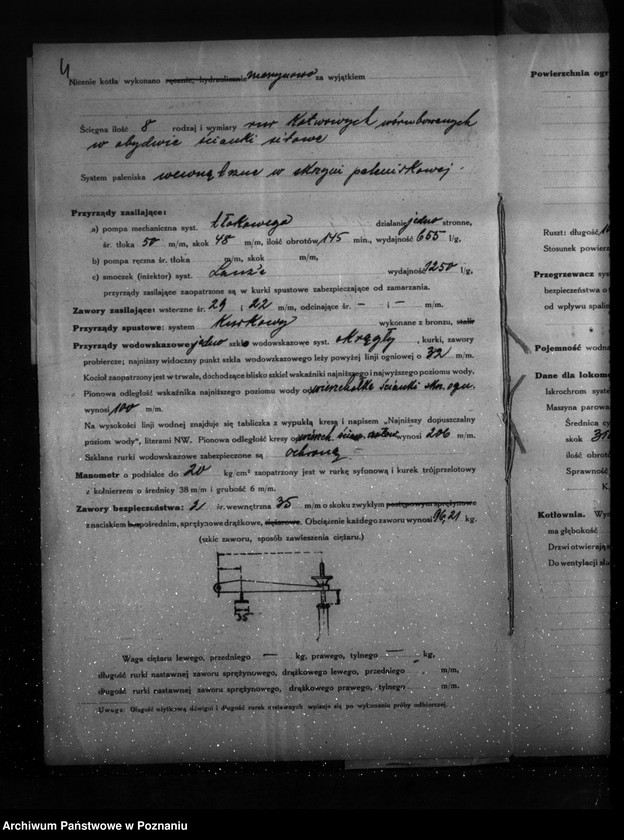 4
Nicenie kotła wykonano ręcznie, hydraulicznie maszynowo za wyjątkiem
Ścięgna ilość 8 rodzaj i wymiary rur kotwowych wśrubowanych
w obydwie ścianki sitowe
System paleniska wewnętrzne w skrzyni paleniskowej.
Przyrządy zasilające:
a) pompa mechaniczna syst. tłokowego działanie jedno stronne,
śr. tłoka 50 m/m, skok 48 m/m, ilość obrotów 145 min., wydajność 655 l/g,
b) pompa ręczna śr. tłoka m/m, skok m/m,
c) smoczek (inżektor) syst. Lanz'a wydajność 1250 l/g,
przyrządy zasilające zaopatrzone są w kurki spustowe zabezpieczające od zamarzania.
Zawory zasilające: wsteczne śr. 29 i 22 m/m, odcinające śr. — i — m/m.
Przyrządy spustowe: system Kurkowy wykonane z bronzu, stali
Przyrządy wodowskazowe: jedno szkło wodowskazowe syst. okrągły, kurki, zawory
probiercze; najniższy widoczny punkt szkła wodowskazowego leży powyżej linji ogniowej o 32 m/m.
Kocioł zaopatrzony jest w trwałe, dochodzące blisko szkieł wskaźniki najniższego i najwyższego poziomu wody.
Pionowa odległość wskaźnika najniższego poziomu wody od wierzchołka ścianki skrz. ogn.
wynosi 100 m/m.
Na wysokości linji wodnej znajduje się tabliczka z wypukłą kresą i napisem „Najniższy dopuszczalny
poziom wody", literami NW. Pionowa odległość kresy od wynosi 206 m/m.
Szklane rurki wodowskazowe zabezpieczone są ochroną
Manometr o podziałce do 20 kg/cm² zaopatrzony jest w rurkę syfonową i kurek trójprzelotowy
z kołnierzem o średnicy 38 m/m i grubość 6 m/m.
Zawory bezpieczeństwa: 2 śr. wewnętrzna 35 m/m o skoku zwykłym postępowym sprężynowe
z naciskiem bezpośrednim, sprężynowe drążkowe, ciężarowe. Obciążenie każdego zaworu wynosi 96,21 kg.
(szkic zaworu, sposób zawieszenia ciężaru.)
35
Waga ciężaru lewego, przedniego — kg, prawego, tylnego — kg,
długość rurki nastawnej zaworu sprężynowego, drążkowego lewego, przedniego m/m,
długość rurki nastawnej zaworu sprężynowego, drążkowego prawego, tylnego m/m.
Uwaga: Długość użytkową dźwigni i długość rurek nastawnych wpisuje się po wykonaniu próby odbiorczej.
Powierzchnia ogr
Ruszt: długość
Stosunek powierz
Przegrzewacz sys
bezpieczeństwa o
od wpływu spalin
Pojemność wodna
Dane dla lokomo
Iskrochron syste
Maszyna parowa
Średnica cy
skok 31
ilość obrotó
Sprawność
K.
Kotłownia. Wym
ma głębokość
Drzwi otwierają s
Do wentylacji słu
Archiwum Państwowe w Poznaniu